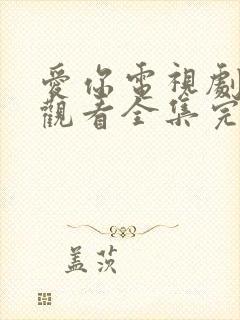 愛你電視劇
觀看全集完
盖茨